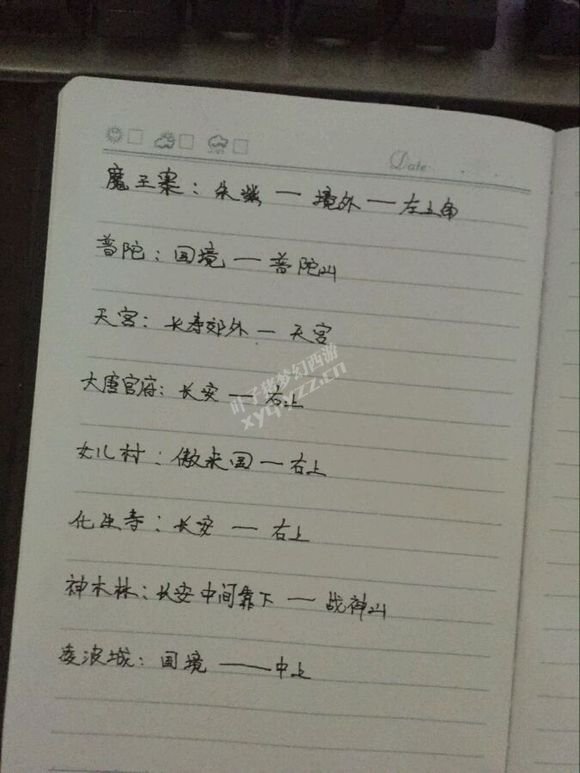 Date
魔王寨：朱紫 — 境外 — 左上角
普陀：国境 — 普陀山
天宫：长寿郊外 — 天宫
大唐官府：长安 — 右上
女儿村：傲来国 — 右上
化生寺：长安 — 右上
神木林：长安中间靠下 — 战神山
凌波城：国境 —— 中上
叶子猪梦幻西游
xyq.yzz.cn